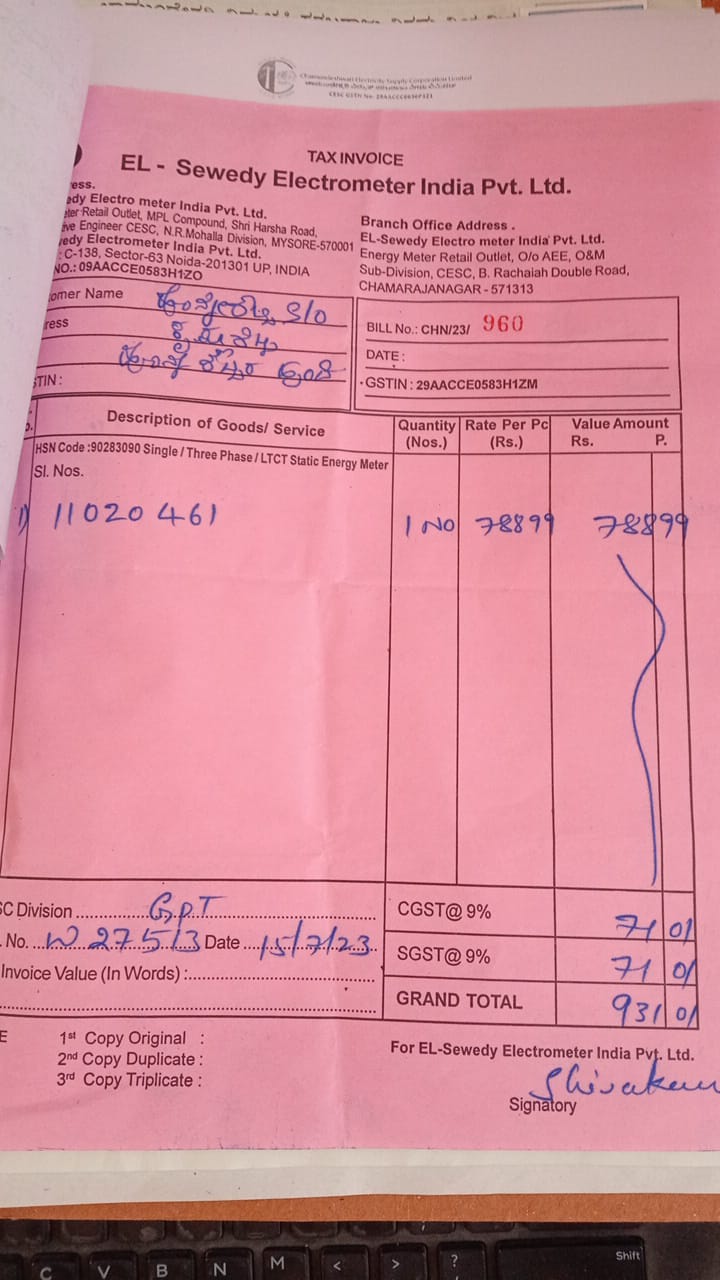 Chamundeshwari Electricity Supply Corporation Limited
TAX INVOICE
EL - Sewedy Electrometer India Pvt. Ltd.
ess.
edy Electro meter India Pvt. Ltd.
ter Retail Outlet, MPL Compound, Shri Harsha Road,
ive Engineer CESC, N.R.Mohalla Division, MYSORE-570001
edy Electrometer India Pvt. Ltd.
: C-138, Sector-63 Noida-201301 UP, INDIA
NO.: 09AACCE0583H1ZO
Branch Office Address .
EL-Sewedy Electro meter India Pvt. Ltd.
Energy Meter Retail Outlet, O/o AEE, O&M
Sub-Division, CESC, B. Rachaiah Double Road,
CHAMARAJANAGAR - 571313
omer Name S/o
ress
TIN :
BILL No.: CHN/23/ 960
DATE :
GSTIN : 29AACCE0583H1ZM
Description of Goods/ Service Quantity (Nos.) Rate Per Pc (Rs.) Value Amount Rs. P.
HSN Code :90283090 Single / Three Phase / LTCT Static Energy Meter
Sl. Nos.
1) 11020461 1 No 78899 78899
SC Division GPT
No. W 27513 Date 15/7/23
Invoice Value (In Words) :
CGST@ 9% 71 01
SGST@ 9% 71 01
GRAND TOTAL 931 01
E 1st Copy Original :
2nd Copy Duplicate :
3rd Copy Triplicate :
For EL-Sewedy Electrometer India Pvt. Ltd.
Shivakum
Signatory
C V B N M < > ? Shift